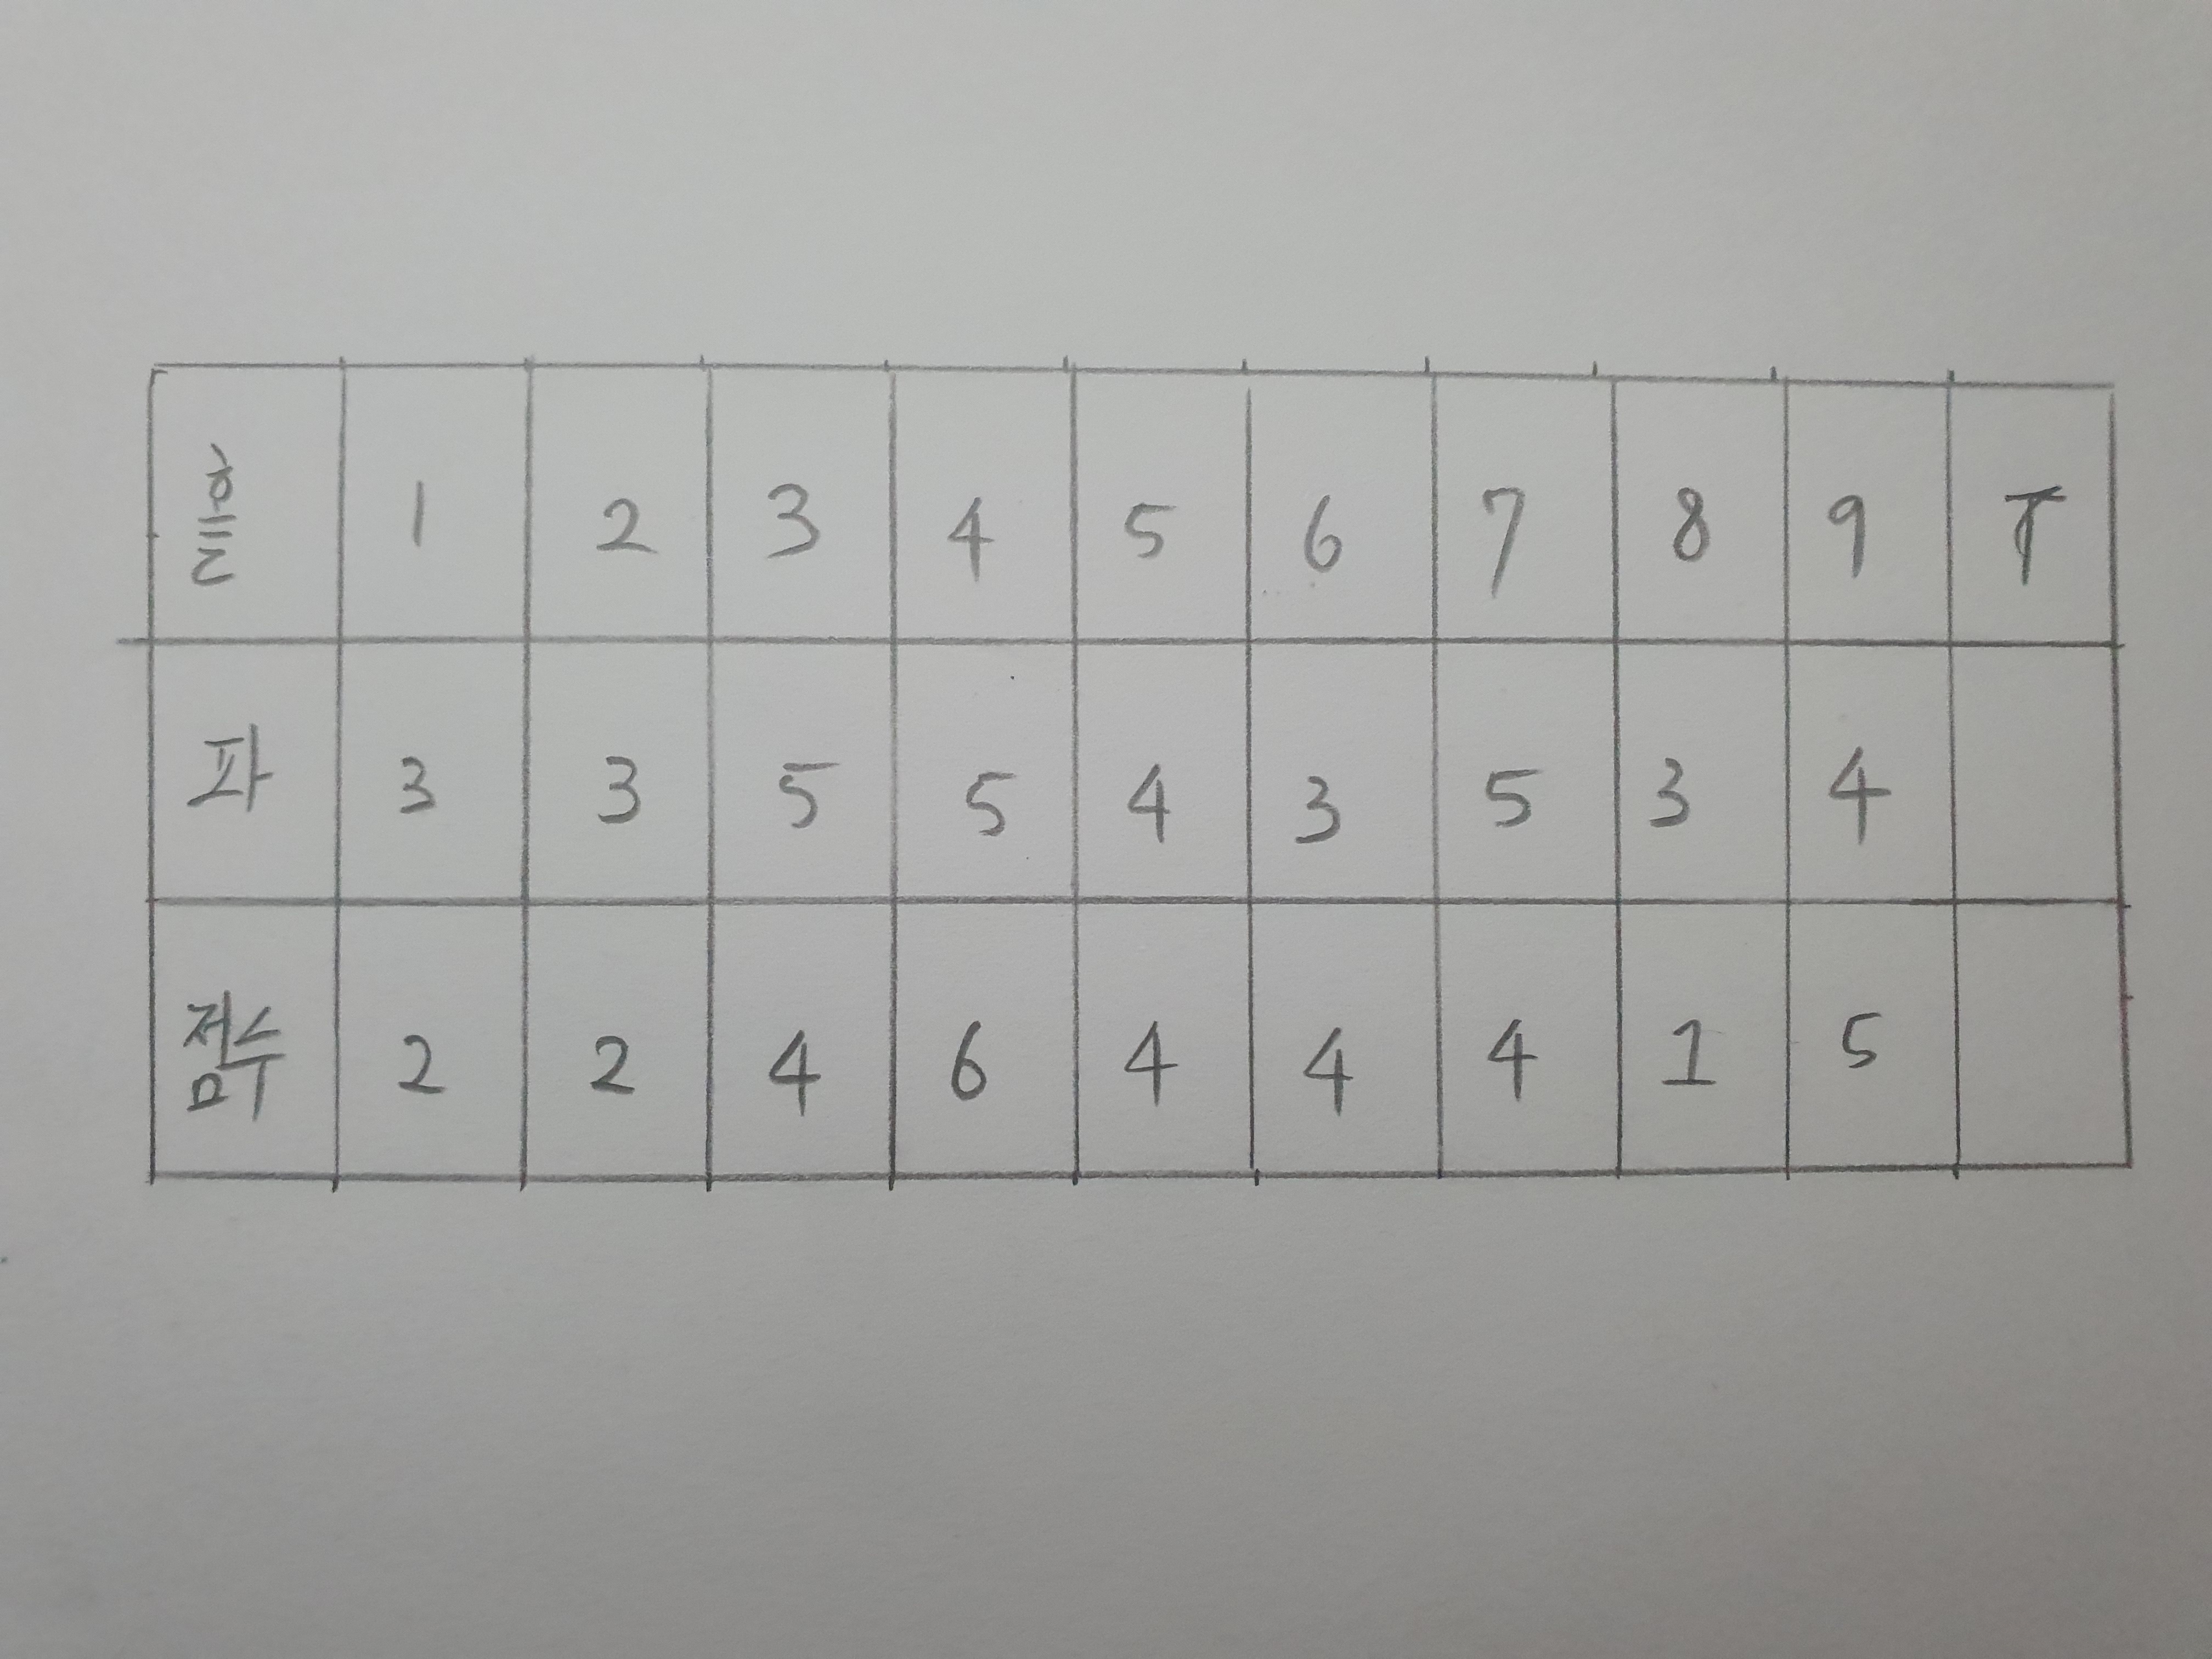 홀 1 2 3 4 5 6 7 8 9 T
파 3 3 5 5 4 3 5 3 4
점수 2 2 4 6 4 4 4 1 5